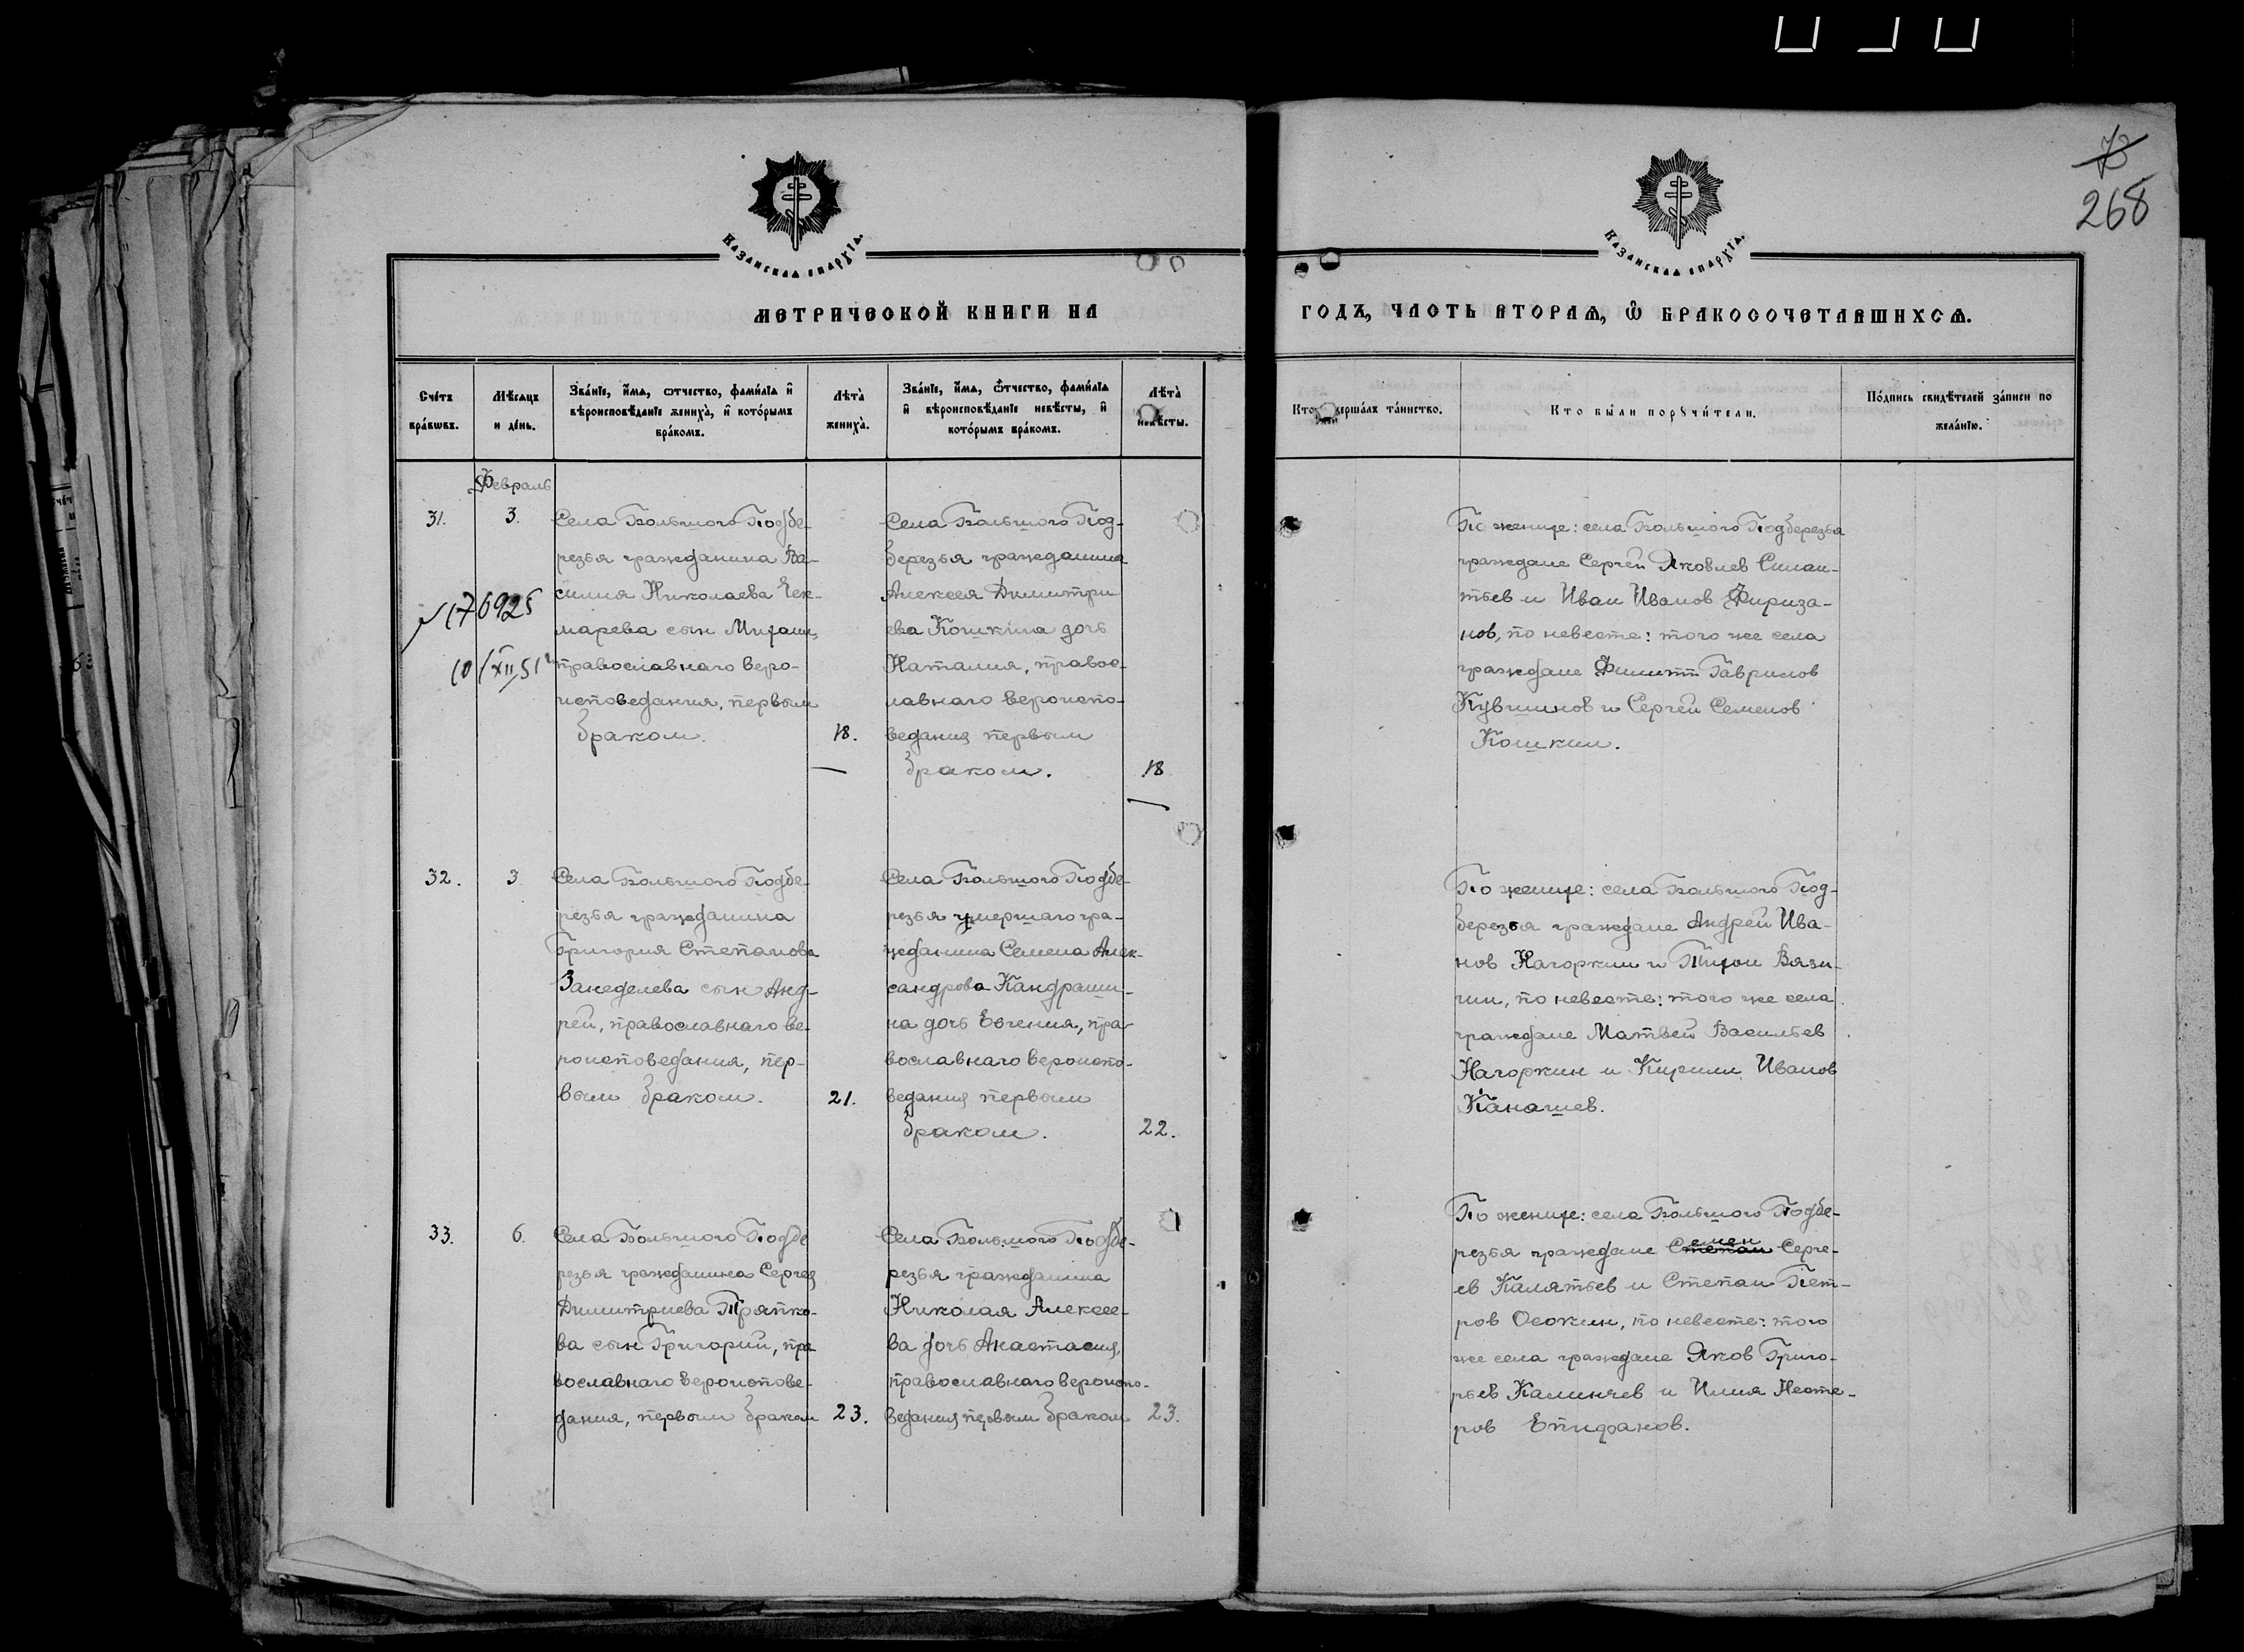 73
268
Казанская епархїа.
Казанская епархїа.
МЕТРИЧЕСКОЙ КНИГИ НА
ГОДЪ, ЧАСТЬ ВТОРАѦ, Ѽ БРАКОСОЧЕТАВШИХСѦ.
Сче́тъ бра́кѡвъ.
Мѣ́сѧцъ и де́нь.
Зва́нїе, и҆́мѧ, ѻ҆́тчество, фами́лїа и҆
вѣроисповѣ́данїе жениха̀, и҆ кото́рымъ
бра́комъ.
Лѣта̀
жениха̀.
Зва́нїе, и҆́мѧ, ѻ҆́тчество, фами́лїа
и҆ вѣроисповѣ́данїе невѣ́сты, и҆
кото́рымъ бра́комъ.
Лѣта̀
невѣ́сты.
Кто̀ соверша́лъ та́инство.
Кто бы́ли порꙋчи́тели.
По́дпись свидѣ́телей за́писи по
жела́нїю.
Февраль
31.
3.
Села Большого Подбе-
резья гражданина Ва-
силия Николаева Чек-
марева сын Михаил,
православнаго веро-
исповедания, первым
браком.
18.
Села Большого Под-
березья гражданина
Алексея Димитри
ева Кошкина дочь
Наталия, правос-
лавнаго вероиспо-
ведания первым
браком.
18
По женихе: села Большого Подберезья
граждане Сергей Яковлев Силан-
тьев и Иван Иванов Фириза-
нов, по невесте: того же села
граждане Филипп Гаврилов
Кувшинов и Сергей Семенов
Кошкин.
176925
10/XII 51
32.
3
Села Большого Подбе-
резья гражданина
Григория Степанова
Занеделева сын Анд-
рей, православнаго ве-
роисповедания, пер-
вым браком.
21.
Села Большого Подбе-
резья умершаго гра-
жданина Семена Алек-
сандрова Кандраши-
на дочь Евгения, пра-
вославнаго вероиспо-
ведания первым
браком.
22.
По женихе: села Большого Под-
березья граждане Андрей Ива-
нов Нагоркин и Тихон Вязи-
гин, по невесте: того же села
граждане Матвей Васильев
Нагоркин и Кирилл Иванов
Канашев.
33.
6.
Села Большого Подбе
резья гражданина Сергея
Димитриева Тряпко-
ва сын Григорий, пра
вославнаго вероиспове-
дания, первым браком
23.
Села Большого Подбе-
резья гражданина
Николая Алексее-
ва дочь Анастасия,
православнаго вероиспо-
ведания первым браком
23.
По женихе: села Большого Подбе-
резья граждане Степан емен Серге-
ев Калятьев и Степан Пет-
ров Осокин, по невесте: того
же села граждане Яков Григо-
рьев Калинчев и Илия Несте-
ров Епифанов.